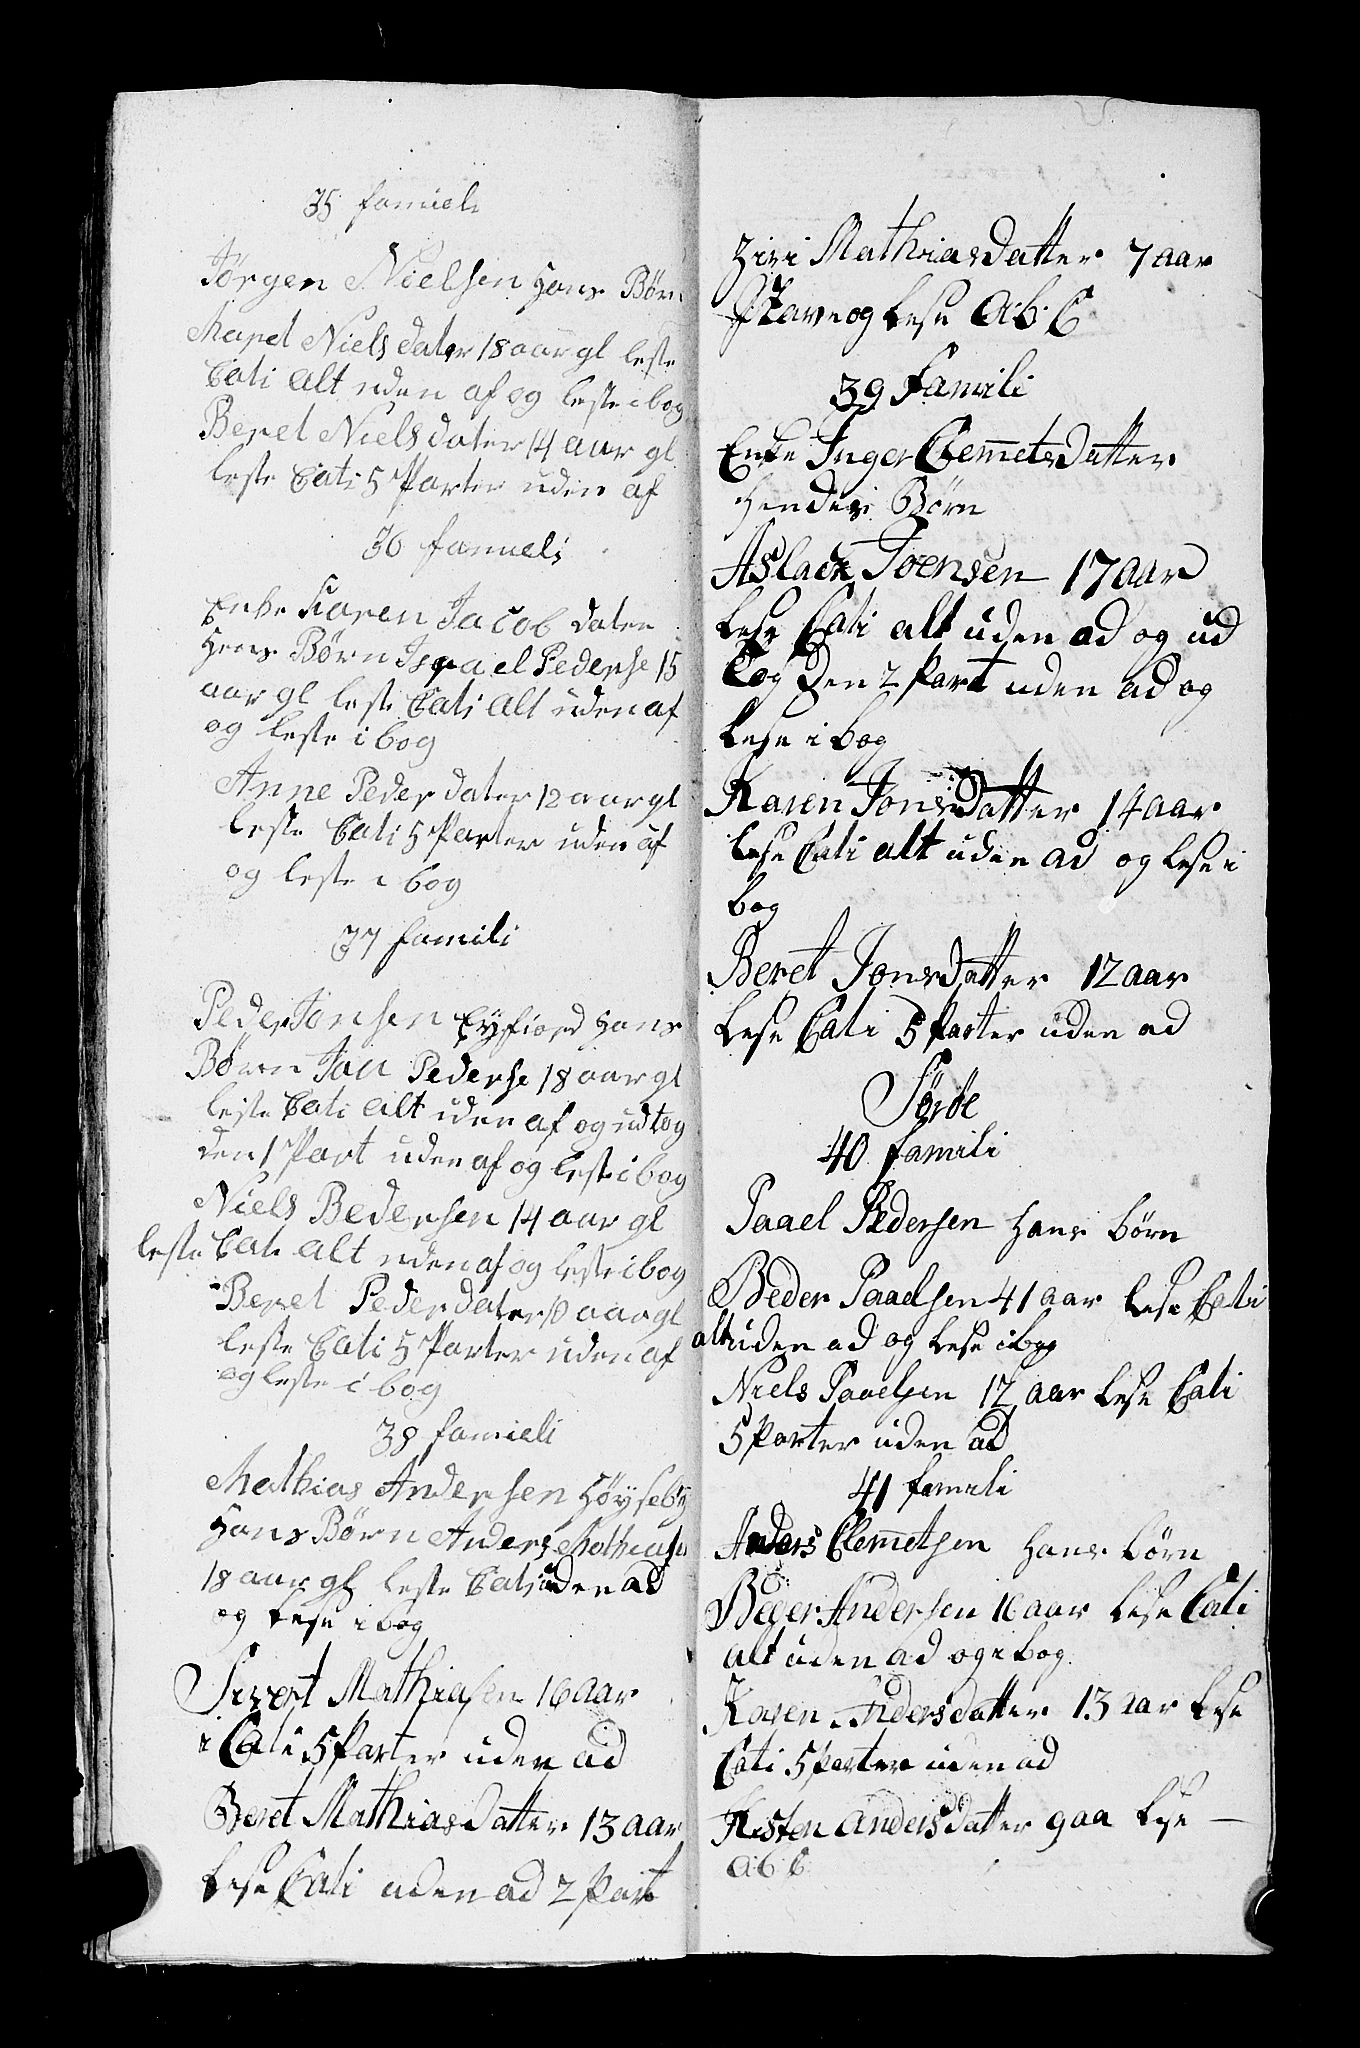 35 famieli
Jørgen Nielsen Hans Børn
Maret Niels dater 18 aar gl leste
Cati alt uden af og leste i bog
Beret Niels dater 14 aar gl
leste Cati 5 Parter uden af
36 famieli
Enke Karen Jacob dater
Hens Børn Israel Pederse 15
aar gl leste Cati Alt uden af
og leste i bog
Anne Peder dater 12 aar gl
leste Cati 5 Parter uden af
og leste i bog
37 famili
Peder Jonsen Eyfiord Hans
Børn Jon Pederse 18 aar gl
leste Cati Alt uden af og udtog
den 1 Part uden af og leste i bog
Niels Bedersen 14 aar gl
leste Cati alt uden af og leste i bog
Beret Peder dater 10 aar gl
leste Cati 5 Parter uden af
og leste i bog
38 famieli
Mathias Andersen Høyseby
Hans Børn Anders Mathiasen
18 aar gl leste Cati uden ad
og lese i bog
Sivert Mathiasen 16 aar
Cati 5 Parter uden ad
Beret Mathiasdatter 13 aar
Lese Cati uden ad 2 Part
Ziri Mathiasdatter 7 aar
Stave og Lese A b C
39 famili
Enke Inger Clemetsdatter
Hendes Børn
Aslack Joensen 17 aar
Lese Cati alt uden ad og ud
Tog den 2 Part uden ad og
Lese i bog
Karen Jonsdatter 14 aar
Lese Cati alt uden ad og lese i
bog
Beret Jonsdatter 12 aar
Lese Cati 5 Parter uden ad
Sørøe
40 famili
Paael Pedersen Hans børn
Beder Paaelsen 41 aar Lese Cati
alt uden ad og Lese i bog
Niels Paaelsen 12 aar Lese Cati
5 Parter uden ad
41 famili
Anders Clemetsen Hans børn
Beger Andersen 16 aar Lese Cati
alt uden ad og i bog
Karen Andersdatter 13 aar Lese
Cati 5 Parter uden ad
Kisten Andersdatter 9 aa Lese —
A b C